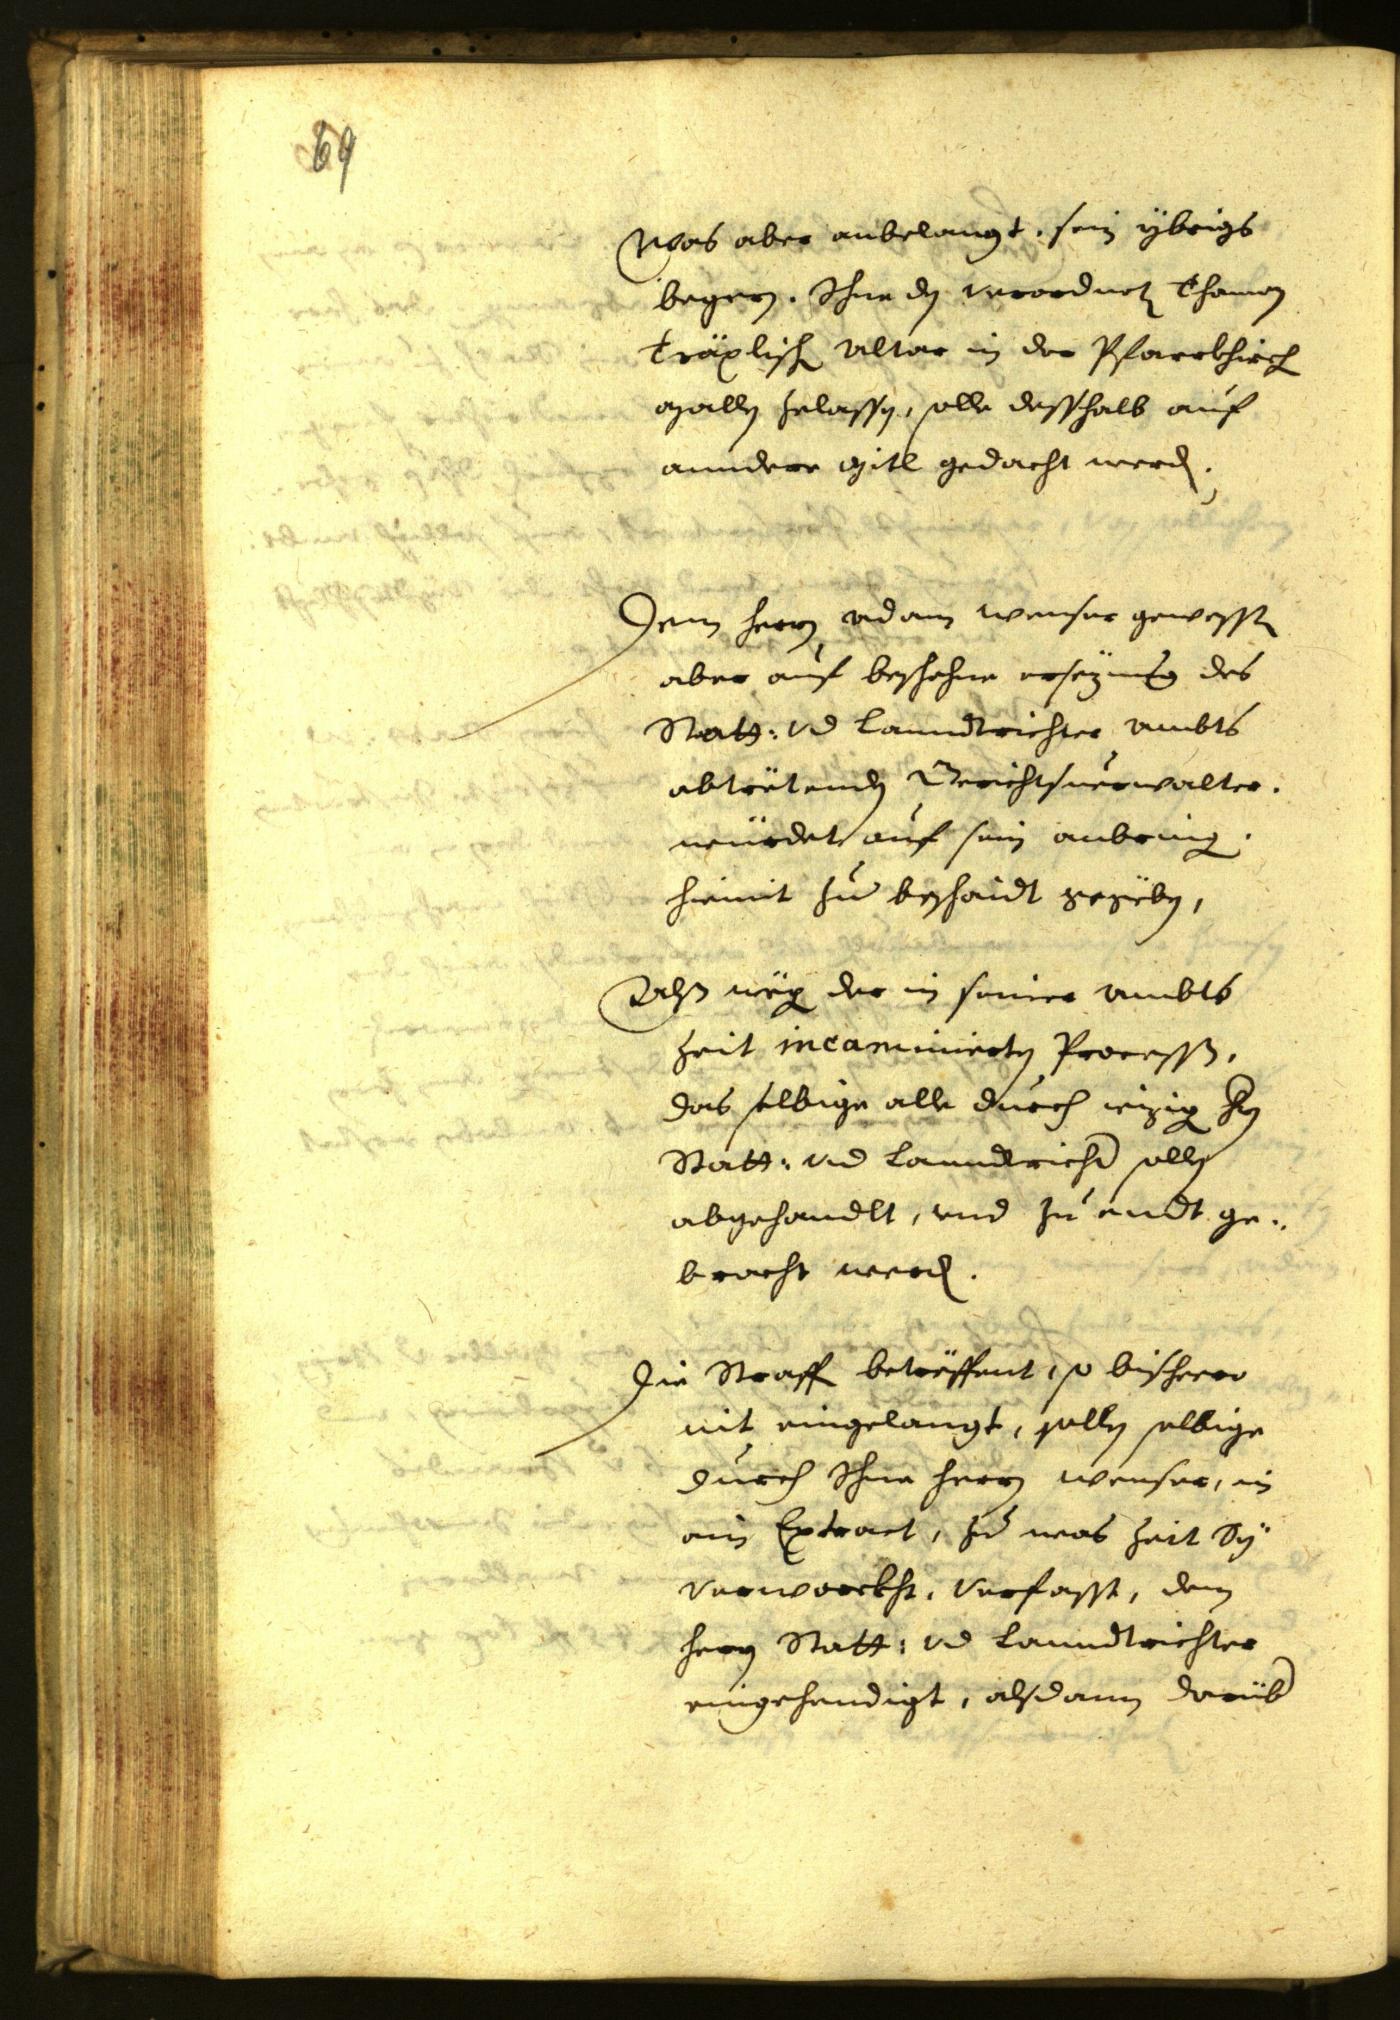 69
Was aber anbelangt. sein ÿbrigs
begern. Ihne den verordnet Thaman
Träxlisch Altar in der Pfarrkhirch
mallen zelassen, solle desshalb auf
anndere mitl gedacht werden.
Dem herrn Adam Wenser gewesst
aber auf beschehne ersezung des
Statt: vnd Lanndtrichter Ambts
abtrëtenden Gerichtsuerwalter.
würdet auf sein anbring.
hiemit zu beschaidt gegëben,
Dass wëgen der in seiner Ambts
zeit incaminierten Processs,
das selbige alle durch iezigen Hn
Statt: vnd Lanndtrichter sollen
abgehandlt, vnd zu endt ge„
bracht werden.
Die Straff betrëffent, so bissheero
nit eingelangt, sollen selbige
durch Ihne herrn Wenser, in
ain Extract, zu was zeit Sÿ
verworckht, verfasst, dem
herrn Statt: vnd Lanndtrichter
eingehendigt, alssdann darüber